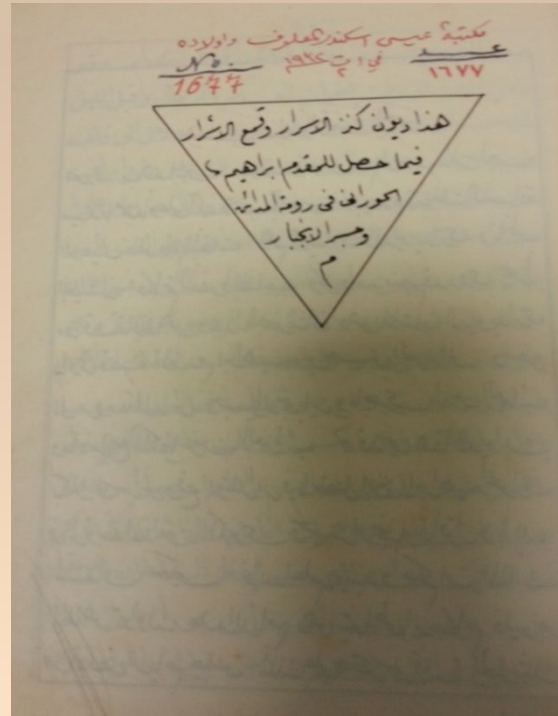 مكتبة عيسى اسكندر المعلوف واولاده
عدد في ١ ت ٢ ١٩٢٤ No
١٦٧٧ 1677
هذا ديوان كنز الاسرار وقمع الاشرار
فيما حصل للمقدم براهيم
الحوراني في رومة المدائن
وجسر الانجبار
م